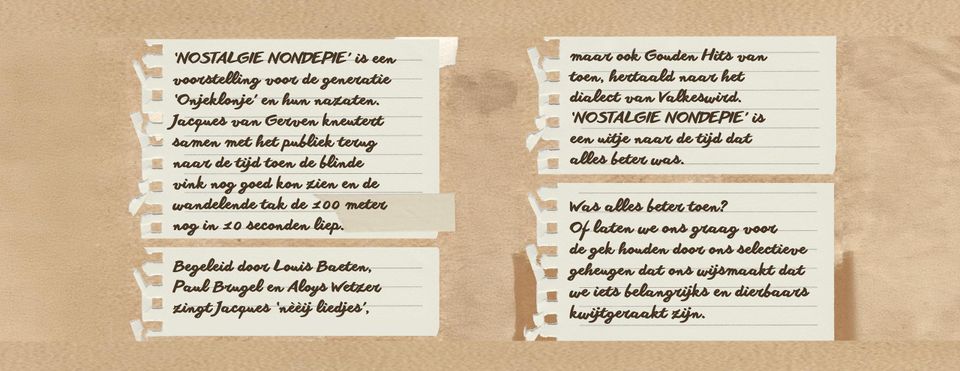 ‘NOSTALGIE NONDEPIE’ is een
voorstelling voor de generatie
‘Onjeklonje’ en hun nazaten.
Jacques van Gerven kneutert
samen met het publiek terug
naar de tijd toen de blinde
vink nog goed kon zien en de
wandelende tak de 100 meter
nog in 10 seconden liep.
Begeleid door Louis Baeten,
Paul Brugel en Aloys Wetzer
zingt Jacques ‘nèèij liedjes’,
maar ook Gouden Hits van
toen, hertaald naar het
dialect van Valkeswird.
‘NOSTALGIE NONDEPIE’ is
een uitje naar de tijd dat
alles beter was.
Was alles beter toen?
Of laten we ons graag voor
de gek houden door ons selectieve
geheugen dat ons wijsmaakt dat
we iets belangrijks en dierbaars
kwijtgeraakt zijn.